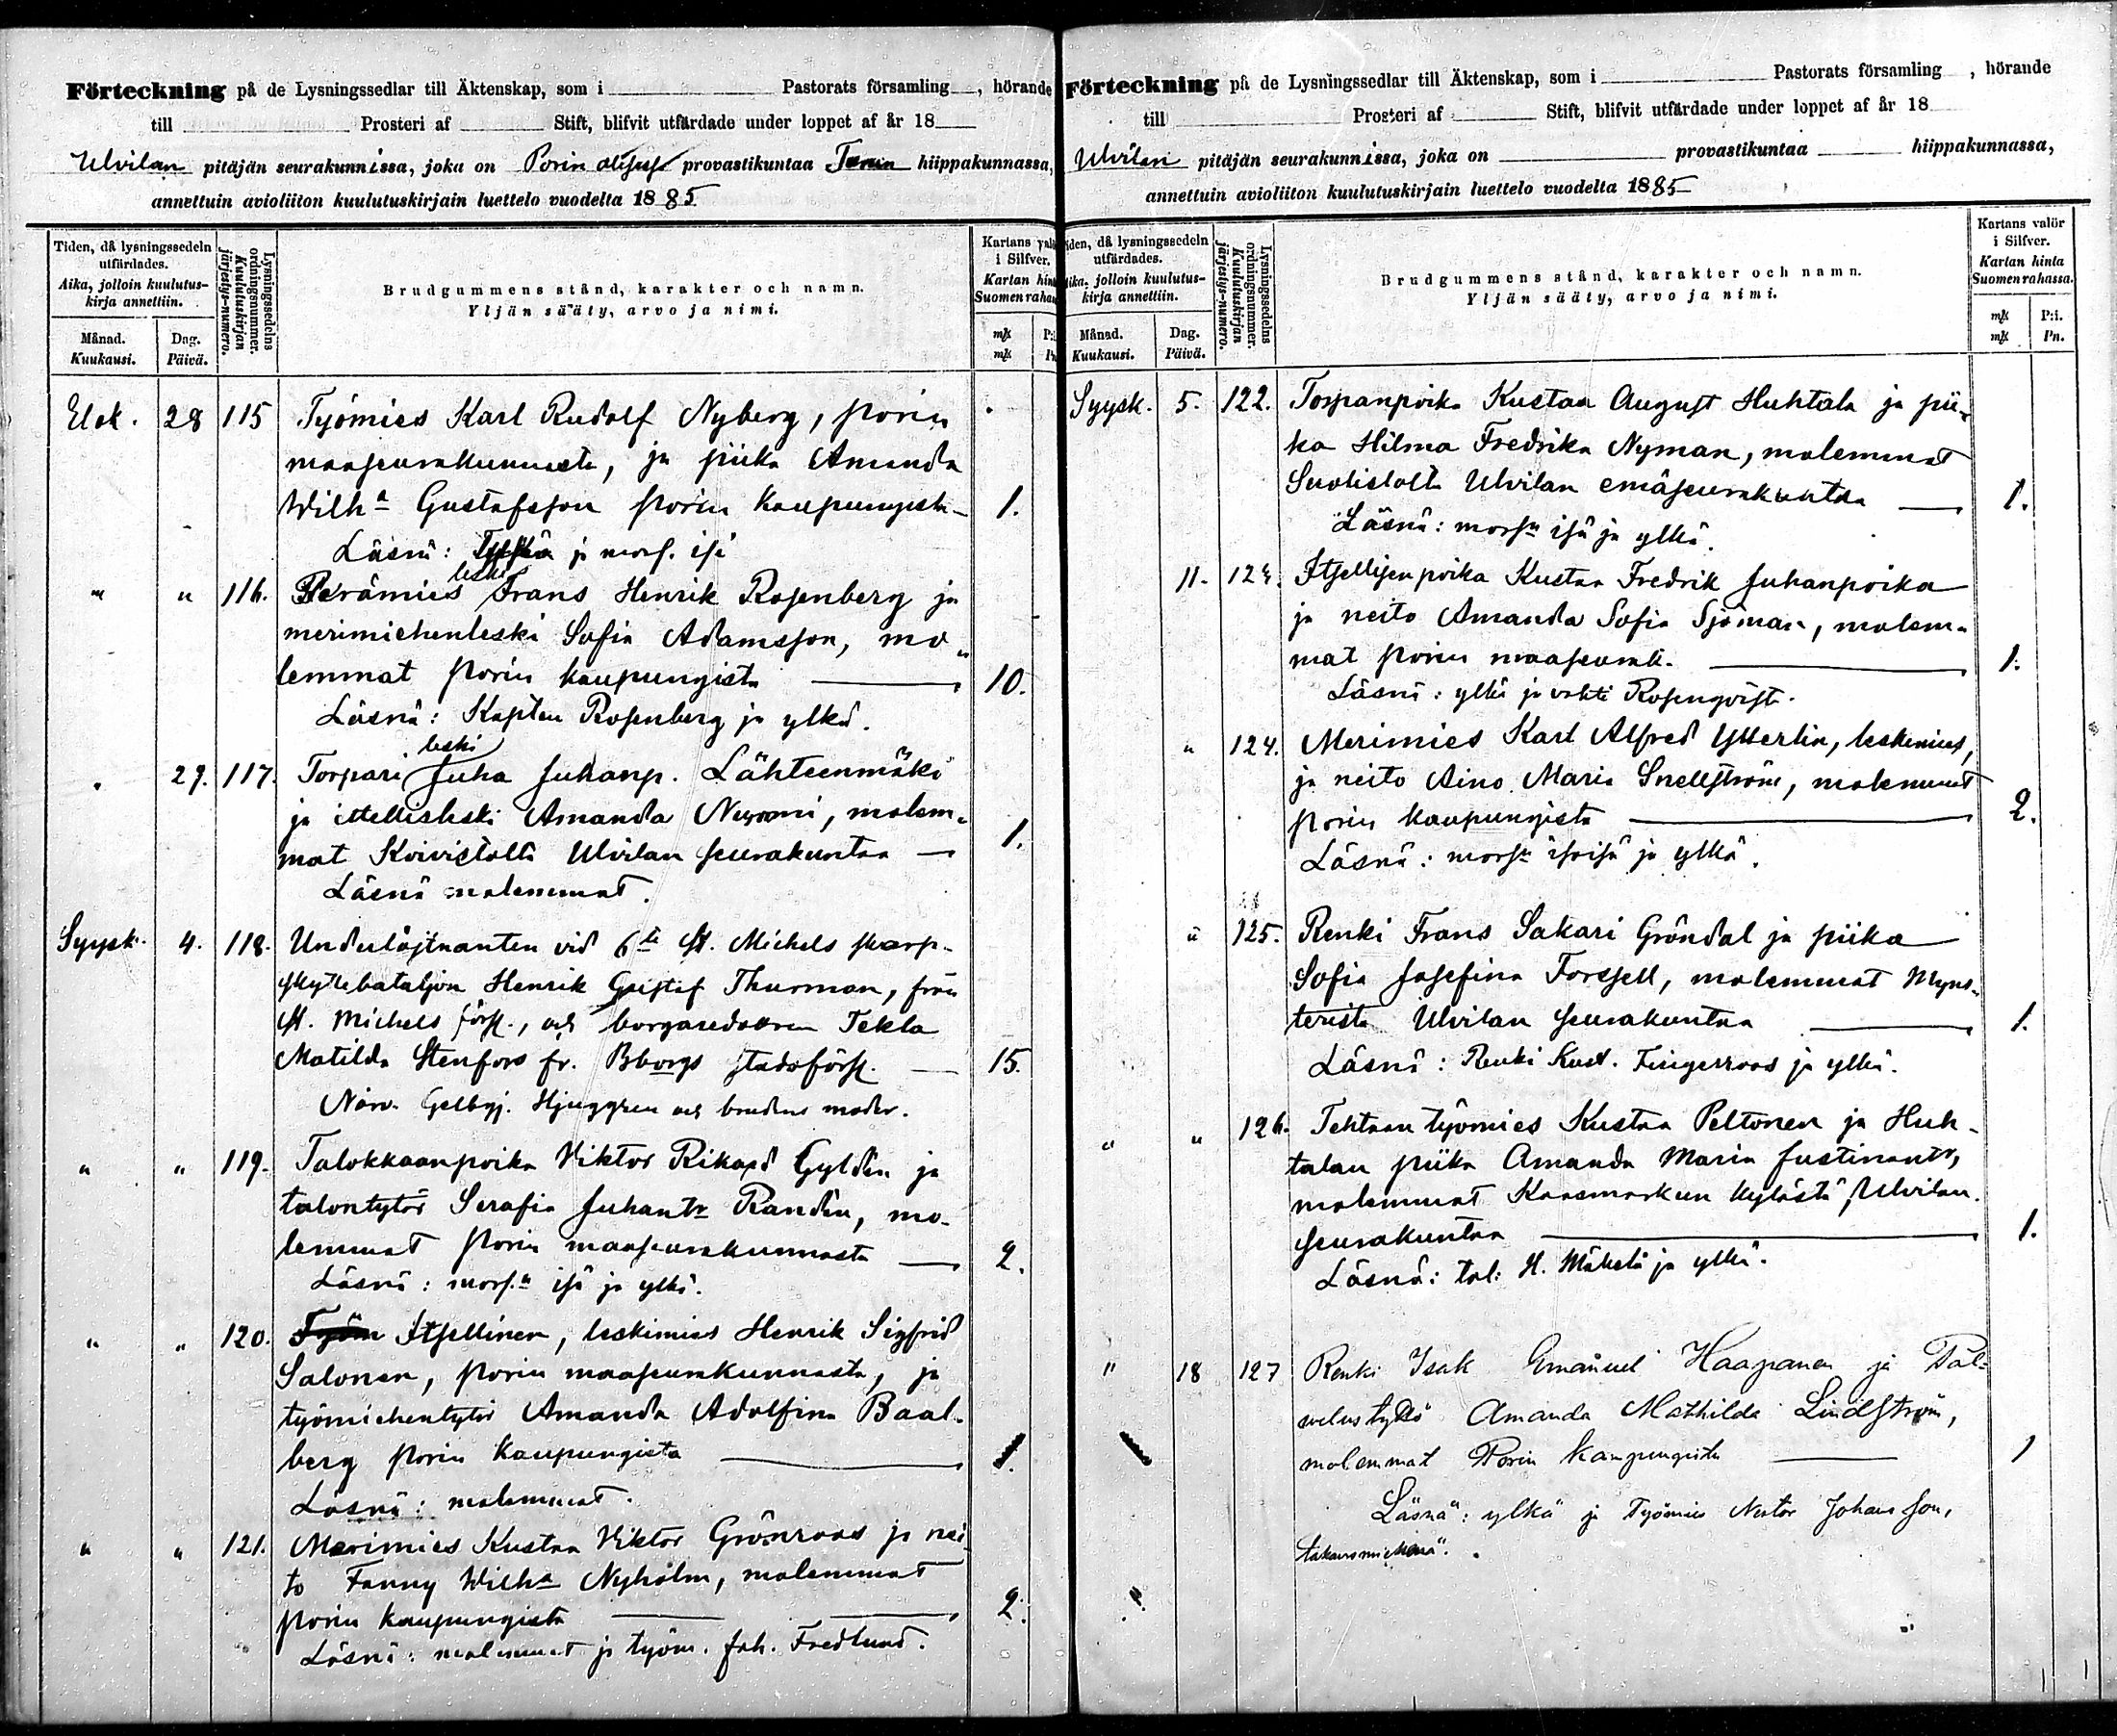 Förteckning på de Lysningssedlar till Äktenskap, som i Pastorats församling, hörande
till Prosteri af Stift, blifvit utfärdade under loppet af år 18
Ulvilan pitäjän seurakunnissa, joka on Porin provastikuntaa Turun hiippakunnassa,
annettuin avioliiton kuulutuskirjain luettelo vuodelta 1885
Tiden, då lysningssedeln utfärdades.
Aika, jolloin kuulutus-kirja annettiin.
Månad. Kuukausi.
Dag. Päivä.
Lysningssedelns ordningsnummer.
Kuulutuskirjan järjestys-numero.
Brudgummens stånd, karakter och namn.
Yljän sääty, arvo ja nimi.
Kartans valö
i Silfver.
Kartan hin
Suomen raha
Elok. 28 115 Työmies Karl Rudolf Nyberg, Porin
maaseurakunnasta, ja piika Amanda
Wilha Gustafsson Porin kaupungista — 1.
Läsnä: ja mors. isä
" " 116. Perämies leski Frans Henrik Rosenberg ja
merimiehenleski Sofia Adamsson, mo-
lemmat Porin kaupungista — 10.
Läsnä: Kapten Rosenberg ja ylkä.
" 29. 117. Torpari leski Juha Juhanp. Lähteenmäki
ja itellisleski Amanda Nurmi, molem-
mat Koivistolta Ulvilan seurakuntaa — 1.
Läsnä molemmat.
Syysk. 4. 118. Underlöjtnanten vid 6te St. Michels skarp-
skyttebataljon Henrik Gustaf Thurman, från
St. Michels förs., och borgaredottren Tekla
Matilda Stenfors fr. Bborgs stadsförs. — 15.
Närv. Gelbgj. Hjuggren och brudens moder.
" " 119. Talokkaanpoika Viktor Rikard Gyldén ja
talontytär Serafia Juhantr Randén, mo-
lemmat Porin maaseurakunnasta — 2.
Läsnä: mors.n isä ja ylkä.
" " 120. Itsellinen, leskimies Henrik Sigfrid
Salonen, Porin maaseurakunnasta, ja
työmiehentytär Amanda Adolfina Baal-
berg Porin kaupungista — 1.
Läsnä: molemmat.
" " 121. Merimies Kustaa Viktor Grönroos ja nei-
to Fanny Wilha Nyholm, molemmat
Porin kaupungista — 2.
Läsnä: molemmat ja työm. Joh. Fredlund.
Förteckning på de Lysningssedlar till Äktenskap, som i Pastorats församling, hörande
till Prosteri af Stift, blifvit utfärdade under loppet af år 18
Ulvilan pitäjän seurakunnissa, joka on provastikuntaa hiippakunnassa,
annettuin avioliiton kuulutuskirjain luettelo vuodelta 1885
iden, då lysningssedeln utfärdades.
ika, jolloin kuulutus-kirja annettiin.
Månad. Kuukausi.
Dag. Päivä.
Lysningssedelns ordningsnummer.
Kuulutuskirjan järjestys-numero.
Brudgummens stånd, karakter och namn.
Yljän sääty, arvo ja nimi.
Kartans valör
i Silfver.
Kartan hinta
Suomen rahassa.
P:i. Pn.
Syysk. 5. 122. Torpanpoika Kustaa August Huhtala ja pii-
ka Hilma Fredrika Nyman, molemmat
Suolistolta Ulvilan emäseurakuntaa — 1.
Läsnä: morsn isä ja ylkä.
11. 123. Itsellisenpoika Kustaa Fredrik Juhanpoika
ja neito Amanda Sofia Sjöman, molem-
mat Porin maaseurak. — 1.
Läsnä: ylkä ja vahti Rosenqvist.
" 124. Merimies Karl Alfred Ytterlin, leskimies,
ja neito Aino Maria Snellström, molemmat
Porin kaupungista — 2.
Läsnä: morsn isoisä ja ylkä.
" 125. Renki Frans Sakari Gröndal ja piika
Sofia Josefina Forssell, molemmat Myns-
teristä Ulvilan seurakuntaa — 1.
Läsnä: Renki Kust. Fingerroos ja ylkä.
" " 126. Tehtaan työmies Kustaa Peltonen ja Huh-
talan piika Amanda Maria Justinantr,
molemmat Kaasmarkun kylästä, Ulvilan
seurakuntaa — 1.
Läsnä: tal: H. Mäkelä ja ylkä.
" 18 127 Renki Isak Emanuel Haapanen ja Pal-
velustyttö Amanda Mathilda Lindström,
molemmat Porin kaupungista — 1
Läsnä: ylkä ja Työmies Nestor Johansson,
takausmiehenä.